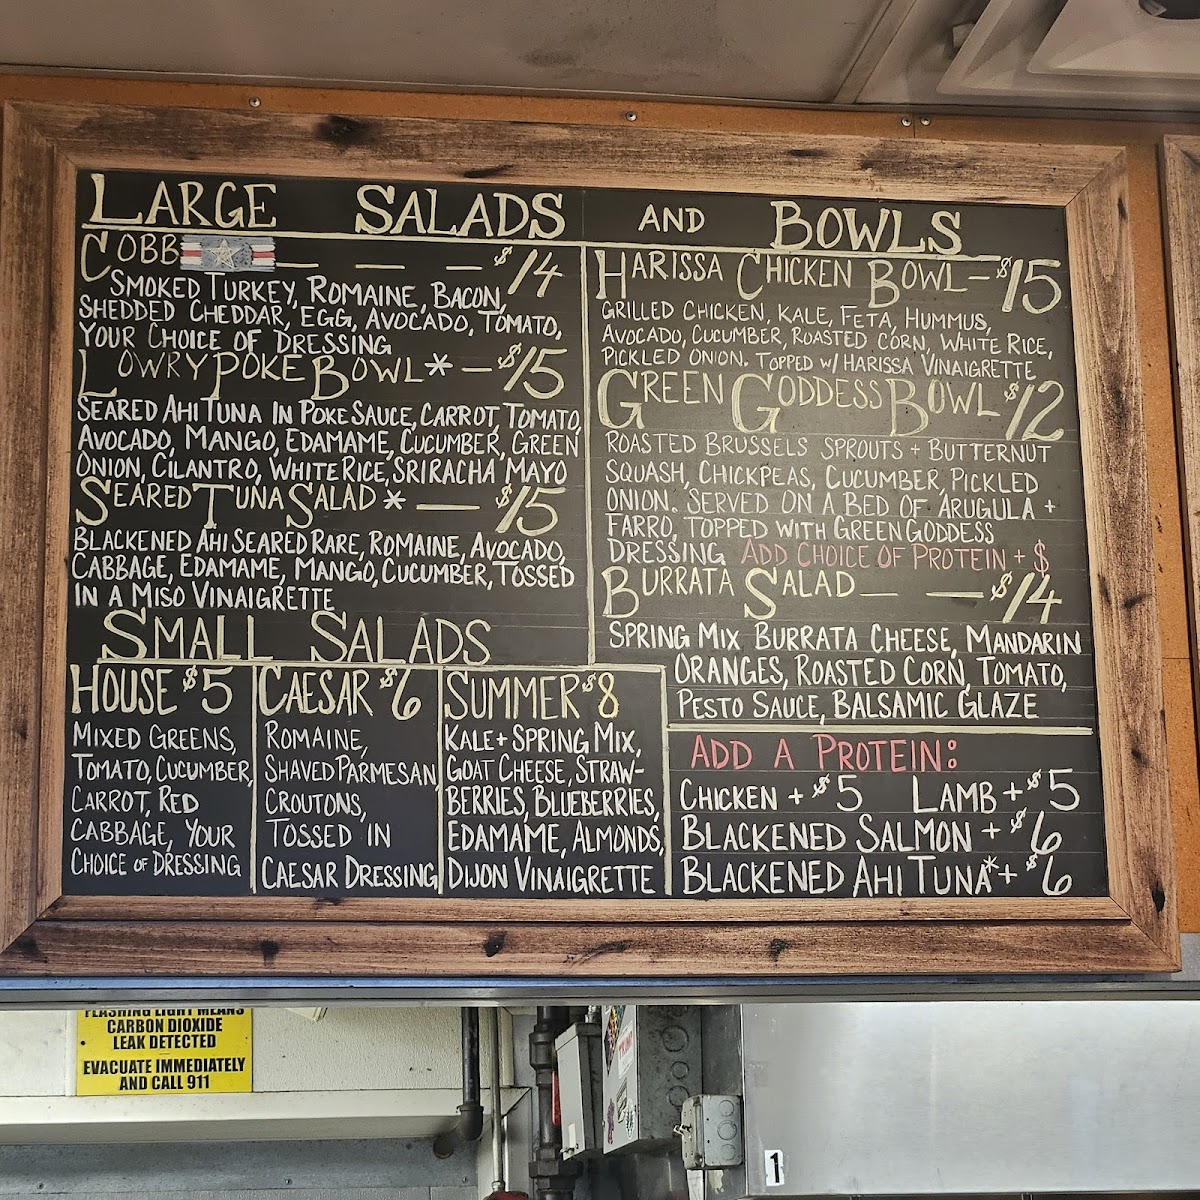 LARGE SALADS AND BOWLS
COBB — — — $14
SMOKED TURKEY, ROMAINE, BACON,
SHEDDED CHEDDAR, EGG, AVOCADO, TOMATO,
YOUR CHOICE OF DRESSING
LOWRY POKE BOWL* — $15
SEARED AHI TUNA IN POKE SAUCE, CARROT, TOMATO,
AVOCADO, MANGO, EDAMAME, CUCUMBER, GREEN
ONION, CILANTRO, WHITE RICE, SRIRACHA MAYO
SEARED TUNA SALAD* — — $15
BLACKENED AHI SEARED RARE, ROMAINE, AVOCADO,
CABBAGE, EDAMAME, MANGO, CUCUMBER, TOSSED
IN A MISO VINAIGRETTE
HARISSA CHICKEN BOWL — $15
GRILLED CHICKEN, KALE, FETA, HUMMUS,
AVOCADO, CUCUMBER, ROASTED CORN, WHITE RICE,
PICKLED ONION. TOPPED W/ HARISSA VINAIGRETTE
GREEN GODDESS BOWL $12
ROASTED BRUSSELS SPROUTS + BUTTERNUT
SQUASH, CHICKPEAS, CUCUMBER, PICKLED
ONION. SERVED ON A BED OF ARUGULA +
FARRO, TOPPED WITH GREEN GODDESS
DRESSING ADD CHOICE OF PROTEIN + $
BURRATA SALAD — — $14
SPRING MIX, BURRATA CHEESE, MANDARIN
ORANGES, ROASTED CORN, TOMATO,
PESTO SAUCE, BALSAMIC GLAZE
SMALL SALADS
HOUSE $5
MIXED GREENS,
TOMATO, CUCUMBER,
CARROT, RED
CABBAGE, YOUR
CHOICE OF DRESSING
CAESAR $6
ROMAINE,
SHAVED PARMESAN,
CROUTONS,
TOSSED IN
CAESAR DRESSING
SUMMER $8
KALE + SPRING MIX,
GOAT CHEESE, STRAW-
BERRIES, BLUEBERRIES,
EDAMAME, ALMONDS,
DIJON VINAIGRETTE
ADD A PROTEIN:
CHICKEN + $5 LAMB + $5
BLACKENED SALMON + $6
BLACKENED AHI TUNA* + $6
FLASHING LIGHT MEANS
CARBON DIOXIDE
LEAK DETECTED
EVACUATE IMMEDIATELY
AND CALL 911
1